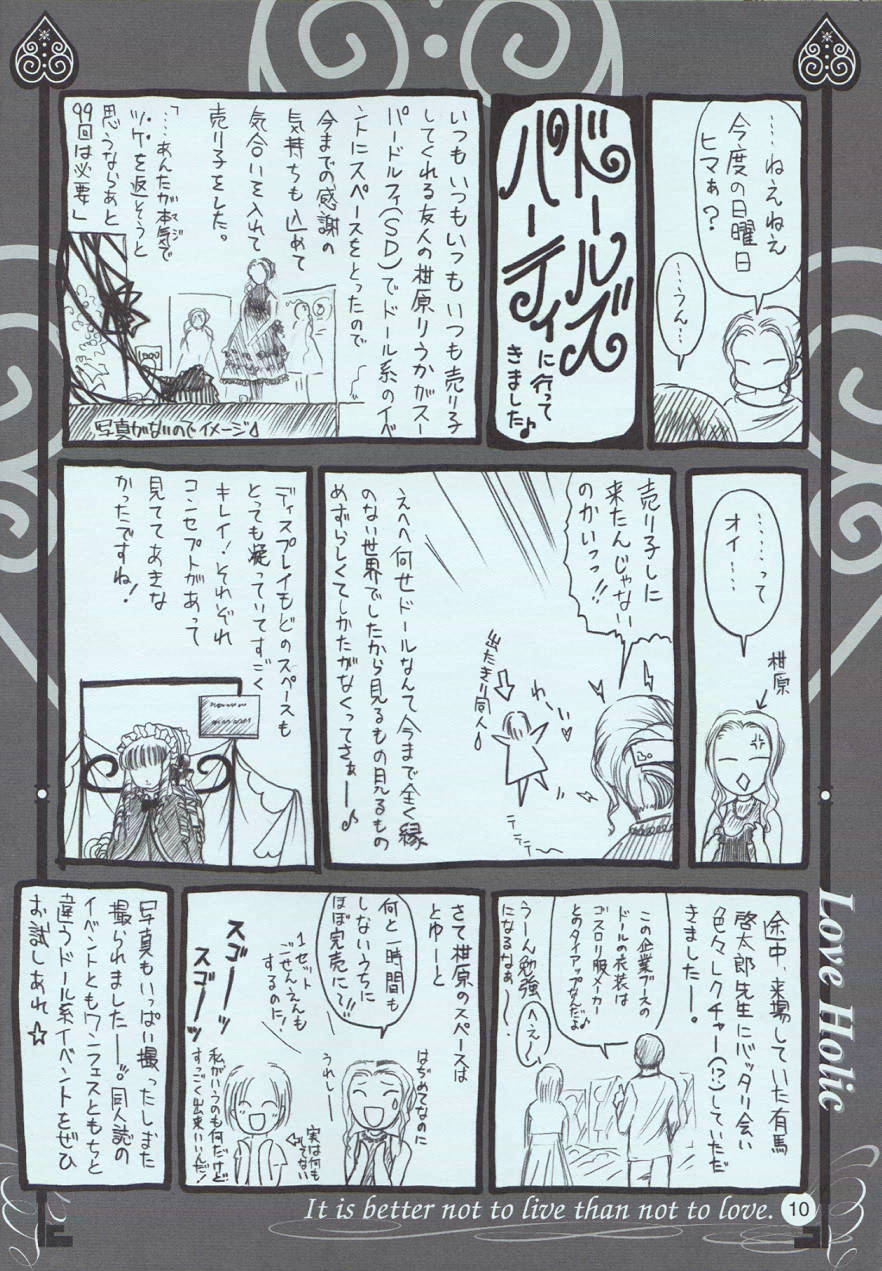 ‥‥ねえねえ
今度の日曜日
ヒマぁ?
‥‥うん‥‥
ドールズ
パーティに行って
きました♪
いつもいつもいつもいつも売り子
してくれる友人の柑原りうかがスー
パードルフィ(SD)でドール系のイベ
ントにスペースをとったので
今までの感謝の
気持ちも込めて
気合いを入れて
売り子をした。
「‥‥あんたが本気で
マジ
ツケを返そうと
思うならあと
99回は必要」
写真がないのでイメージ♪
‥‥‥って
オイ‥‥
柑原
売り子しに
来たんじゃない
のかいっっ!!
出たきり同人♪
わーい
テテテー
えへへ何せドールなんて今まで全く縁
のない世界でしたから見るもの見るもの
めずらしくてしかたがなくってさぁー♪
ディスプレイもどのスペースも
とっても凝っていてすごく
キレイ!それぞれ
コンセプトがあって
見ててあきな
かったですね!
途中、来場していた有馬
啓太郎先生にバッタリ会い
色々レクチャー(!?)していただ
きましたー。
この企業ブースの
ドールの衣装は
ゴスロリ服メーカー
とのタイアップなんだよ♪
へえ〜
うーん勉強
になるなぁ〜
さて柑原のスペースは
とゆーと
はぢめてなのに
何と一時間も
しないうちに
ほぼ完売に!!
うれしー
1セット
ごせんえんも
するのに!
スゴーッ
スゴーッ
実は何も
してない
私がいうのも何だけど
すっごく出来いいんだ!
写真もいっぱい撮ったしまた
撮られましたー。同人誌の
イベントともワンフェスともちと
違うドール系イベントをぜひ
お試しあれ☆
Love Holic
It is better not to live than not to love.
10